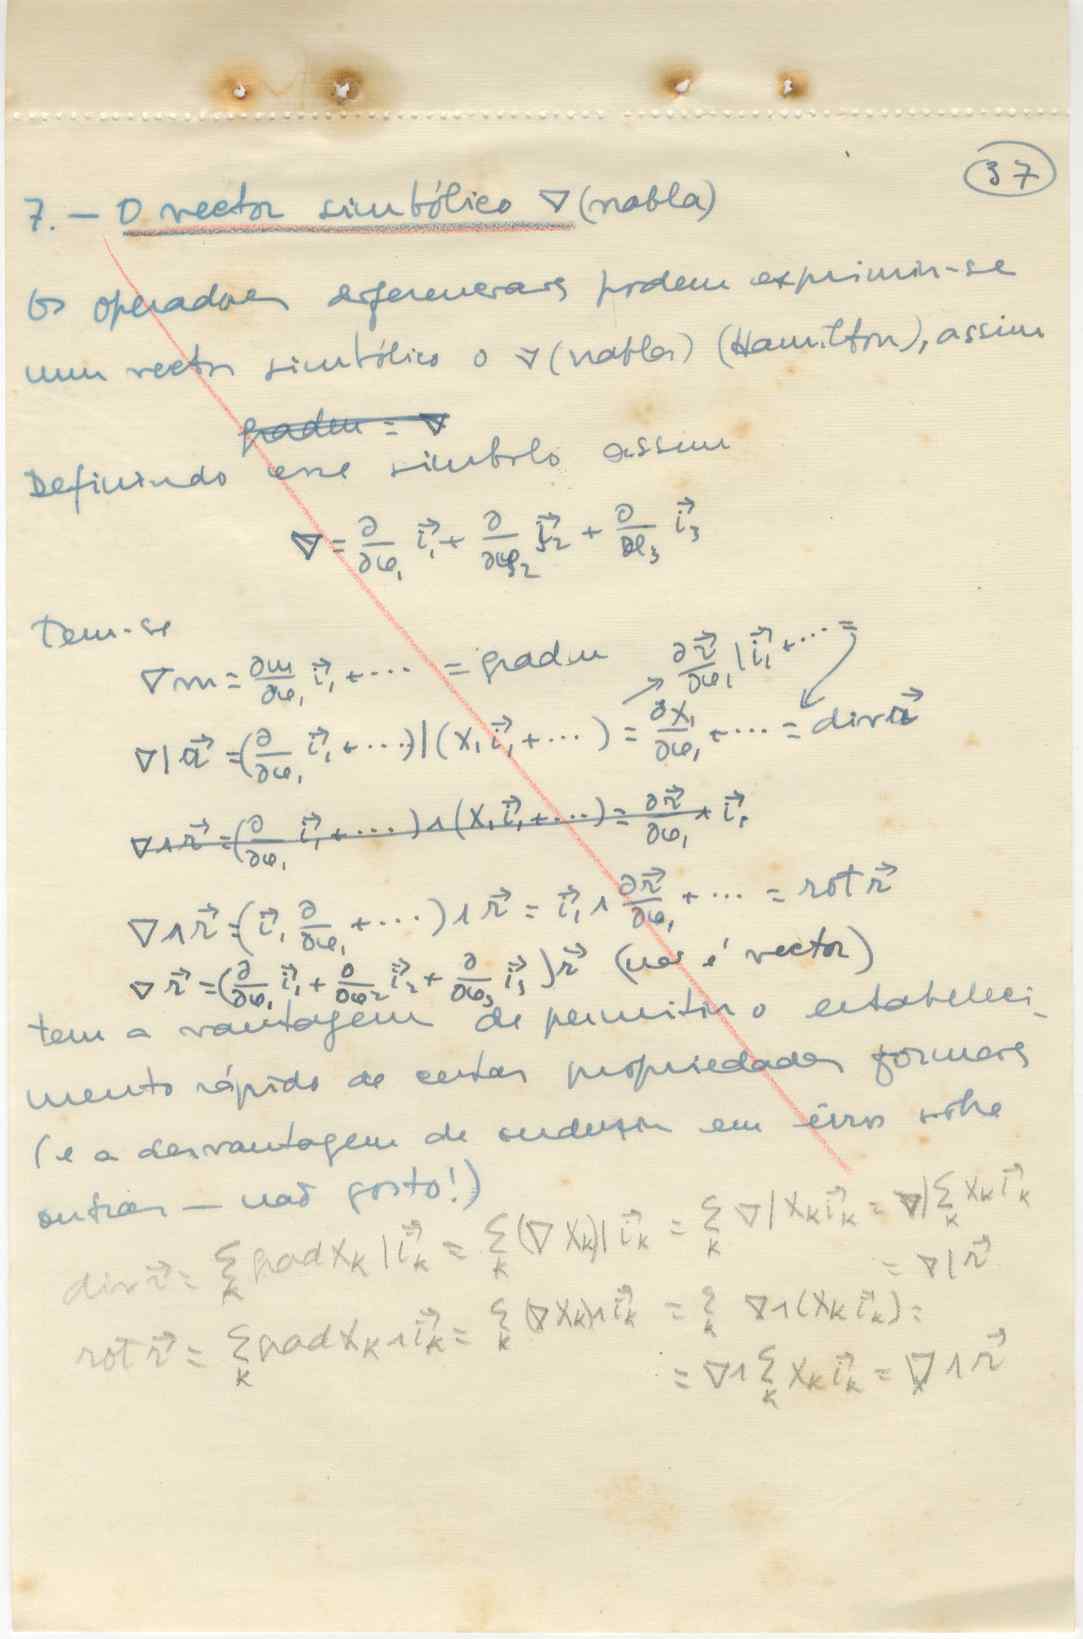 37
7. — O vector simbólico ∇ (nabla)
Os operadores diferenciais podem exprimir-se
num vector simbólico o ∇ (nabla) (Hamilton), assim
grad m = ∇
Definindo esse símbolo assim
∇ = ∂/∂φ₁ i⃗₁ + ∂/∂φ₂ i⃗₂ + ∂/∂φ₃ i⃗₃
Tem-se
∇m = ∂m/∂φ₁ i⃗₁ + ... = grad m
∂r⃗/∂φ₁ | i⃗₁ + ... =
∇ | r⃗ = (∂/∂φ₁ i⃗₁ + ...) | (X₁ i⃗₁ + ...) = ∂X₁/∂φ₁ + ... = div r⃗
∇ ∧ r⃗ = (∂/∂φ₁ i⃗₁ + ...) ∧ (X₁ i⃗₁ + ...) = ∂r⃗/∂φ₁ ∧ i⃗₁
∇ ∧ r⃗ = (i⃗₁ ∂/∂φ₁ + ...) ∧ r⃗ = i⃗₁ ∧ ∂r⃗/∂φ₁ + ... = rot r⃗
∇ r⃗ = (∂/∂φ₁ i⃗₁ + ∂/∂φ₂ i⃗₂ + ∂/∂φ₃ i⃗₃) r⃗ (não é vector)
tem a vantagem de permitir o estabeleci-
mento rápido de certas propriedades formais
(e a desvantagem de induzir em êrros sôbre
outras — não gosto!)
div r⃗ = Σₖ grad Xₖ | i⃗ₖ = Σₖ (∇ Xₖ) | i⃗ₖ = Σₖ ∇ | Xₖ i⃗ₖ = ∇ | Σₖ Xₖ i⃗ₖ
= ∇ | r⃗
rot r⃗ = Σₖ grad Xₖ ∧ i⃗ₖ = Σₖ (∇ Xₖ) ∧ i⃗ₖ = Σₖ ∇ ∧ (Xₖ i⃗ₖ) =
= ∇ ∧ Σₖ Xₖ i⃗ₖ = ∇ ∧ r⃗